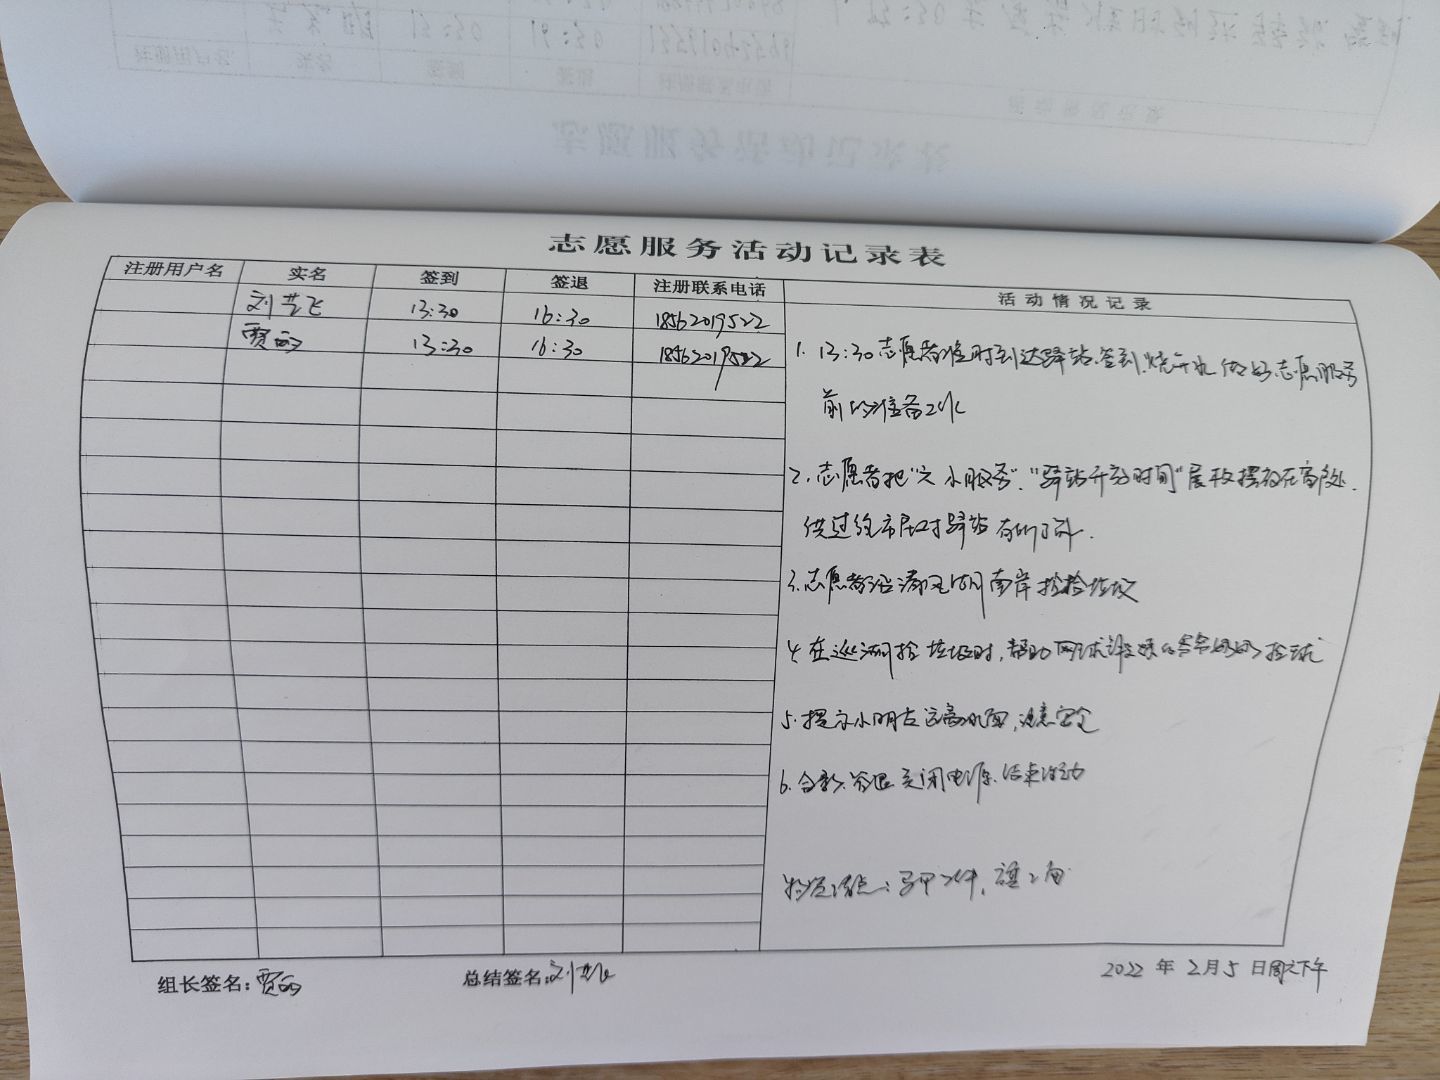 志愿服务活动记录表
注册用户名 实名 签到 签退 注册联系电话 活动情况记录
刘芸飞 13:30 16:30 18562019522
贾 13:30 16:30 18562019522
1. 13:30志愿者准时到达驿站.签到.烧开水 做好志愿服务
前的准备工作
2.志愿者把"六小服务"、"驿站开放时间"展板摆放在高处.
供过往市民对驿站有所了解.
3.志愿者沿 湖南岸捡拾垃圾
4.在巡湖捡垃圾时,帮助网球 捡球
5.提示小朋友远离水面,注意安全
6.合影.签退 关闭电源.结束活动
物资清点:马甲2件,
组长签名:贾 总结签名:刘芸飞 2022年2月5日周六下午